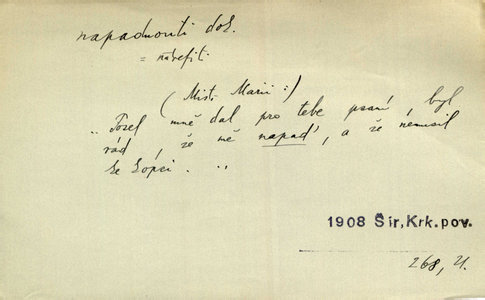 napadnouti dok.
= natrefiti
(Místr. Marii:)
„Tozel mně dal pro tebe psaní, byl
rád, že mě napad', a že nemusil
ke Kopci. ..
1908 Šír, Krk. pov.
268, 21.